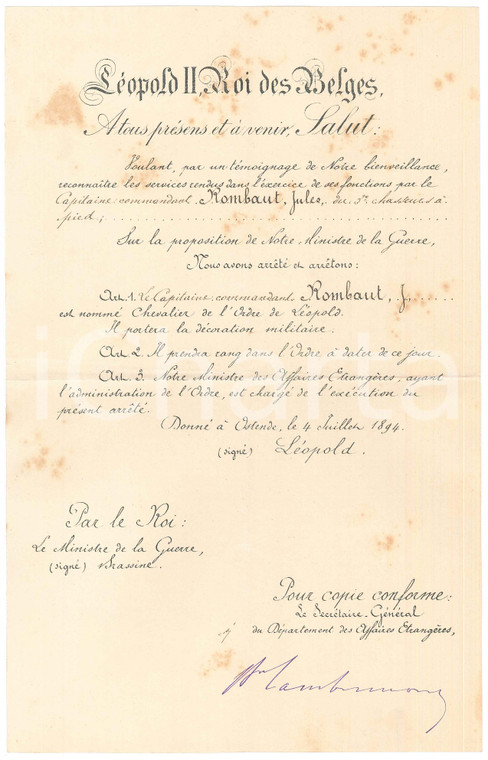 Léopold II, Roi des Belges,
A tous présens et à venir, Salut:
Voulant, par un témoignage de Notre bienveillance,
reconnaître les services rendus dans l'exercice de ses fonctions par le
Capitaine commandant Rombaut, Jules, du 3e chasseurs à
pied;
Sur la proposition de Notre Ministre de la Guerre,
Nous avons arrêté et arrêtons:
Art. 1. Le Capitaine commandant Rombaut, J.,
est nommé Chevalier de l'Ordre de Léopold.
Il portera la décoration militaire.
Art. 2. Il prendra rang dans l'Ordre à dater de ce jour.
Art. 3. Notre Ministre des Affaires Etrangères, ayant
l'administration de l'Ordre, est chargé de l'exécution du
présent arrêté.
Donné à Ostende, le 4 Juillet 1894.
(signé) Léopold.
Par le Roi:
Le Ministre de la Guerre,
(signé) Brassine.
Pour copie conforme:
Le Secrétaire-Général
du Département des Affaires Etrangères,